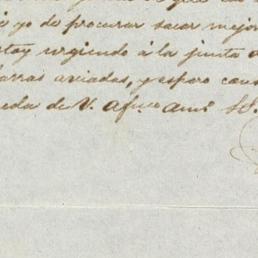 yo de procurar sacar mejor
estoy urgiendo á la junta
barras aviadas, y espero
queda de V. afmo ami